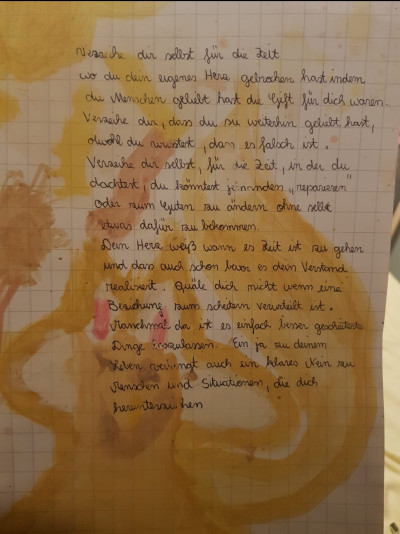 Verzeihe dir selbst für die Zeit
wo du dein eigenes Herz gebrochen hast indem
du Menschen geliebt hast die Gift für dich waren.
Verzeihe dir, dass du sie weiterhin geliebt hast,
obwohl du wusstest, dass es falsch ist.
Verzeihe dir selbst, für die Zeit, in der du
dachtest, du könntest jemanden „reparieren"
oder zum Guten zu ändern ohne selbst
etwas dafür zu bekommen.
Dein Herz weiß wann es Zeit ist zu gehen
und das auch schon bevor es dein Verstand
realisiert. Quäle dich nicht wenn eine
Beziehung zum scheitern verurteilt ist.
Manchmal da ist es einfach besser gescheiterte
Dinge loszulassen. Ein ja zu deinem
Leben verlangt auch ein klares Nein zu
Menschen und Situationen, die dich
herunterziehen